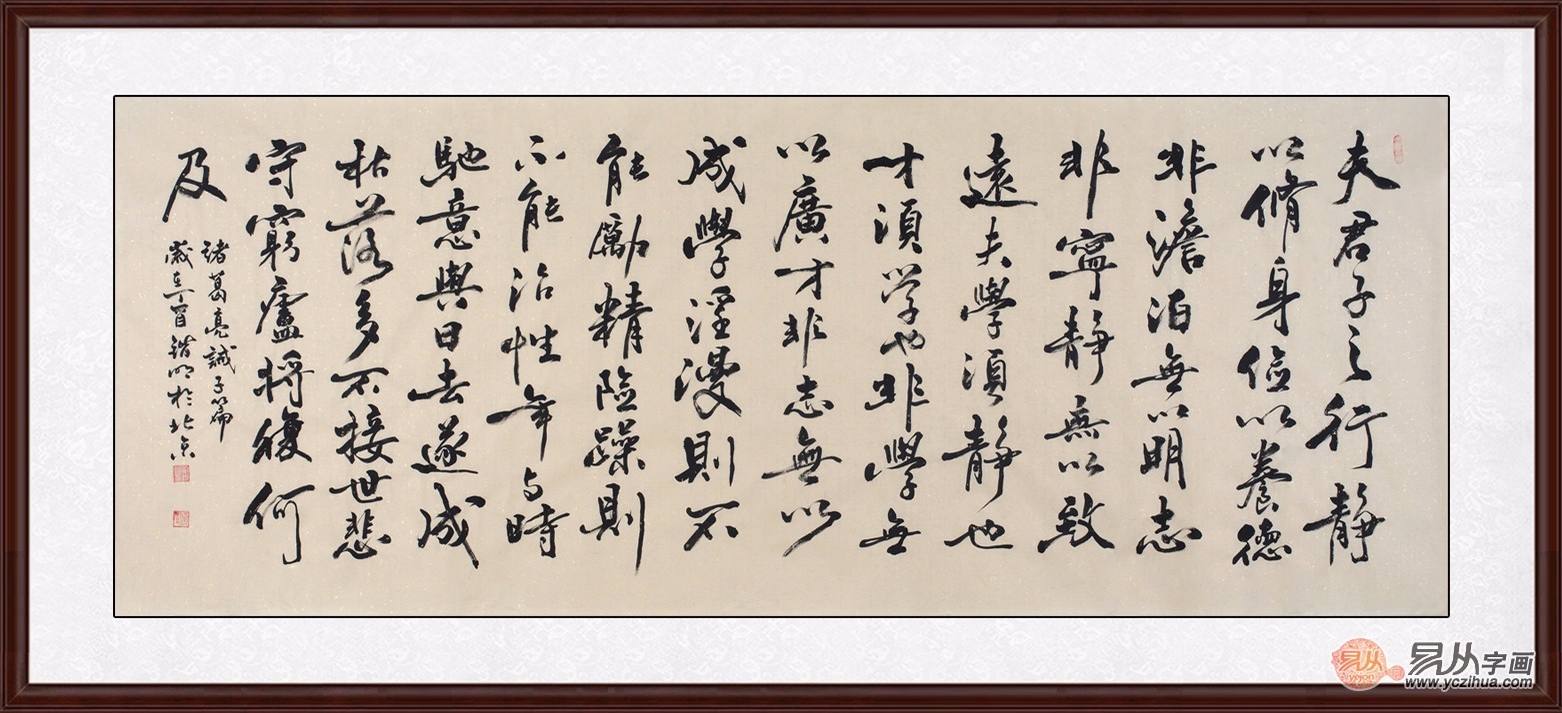 夫君子之行静
以脩身儉以養德
非澹泊無以明志
非寧静無以致
遠夫學須静也
才須学也非學無
以廣才非志無以
成學淫漫則不
能勵精險躁則
不能治性年与時
馳意與日去遂成
枯落多不接世悲
守窮廬將復何
及
諸葛亮誡子篇
歲在 明於北京
易从字画
yejon
www.yczihua.com